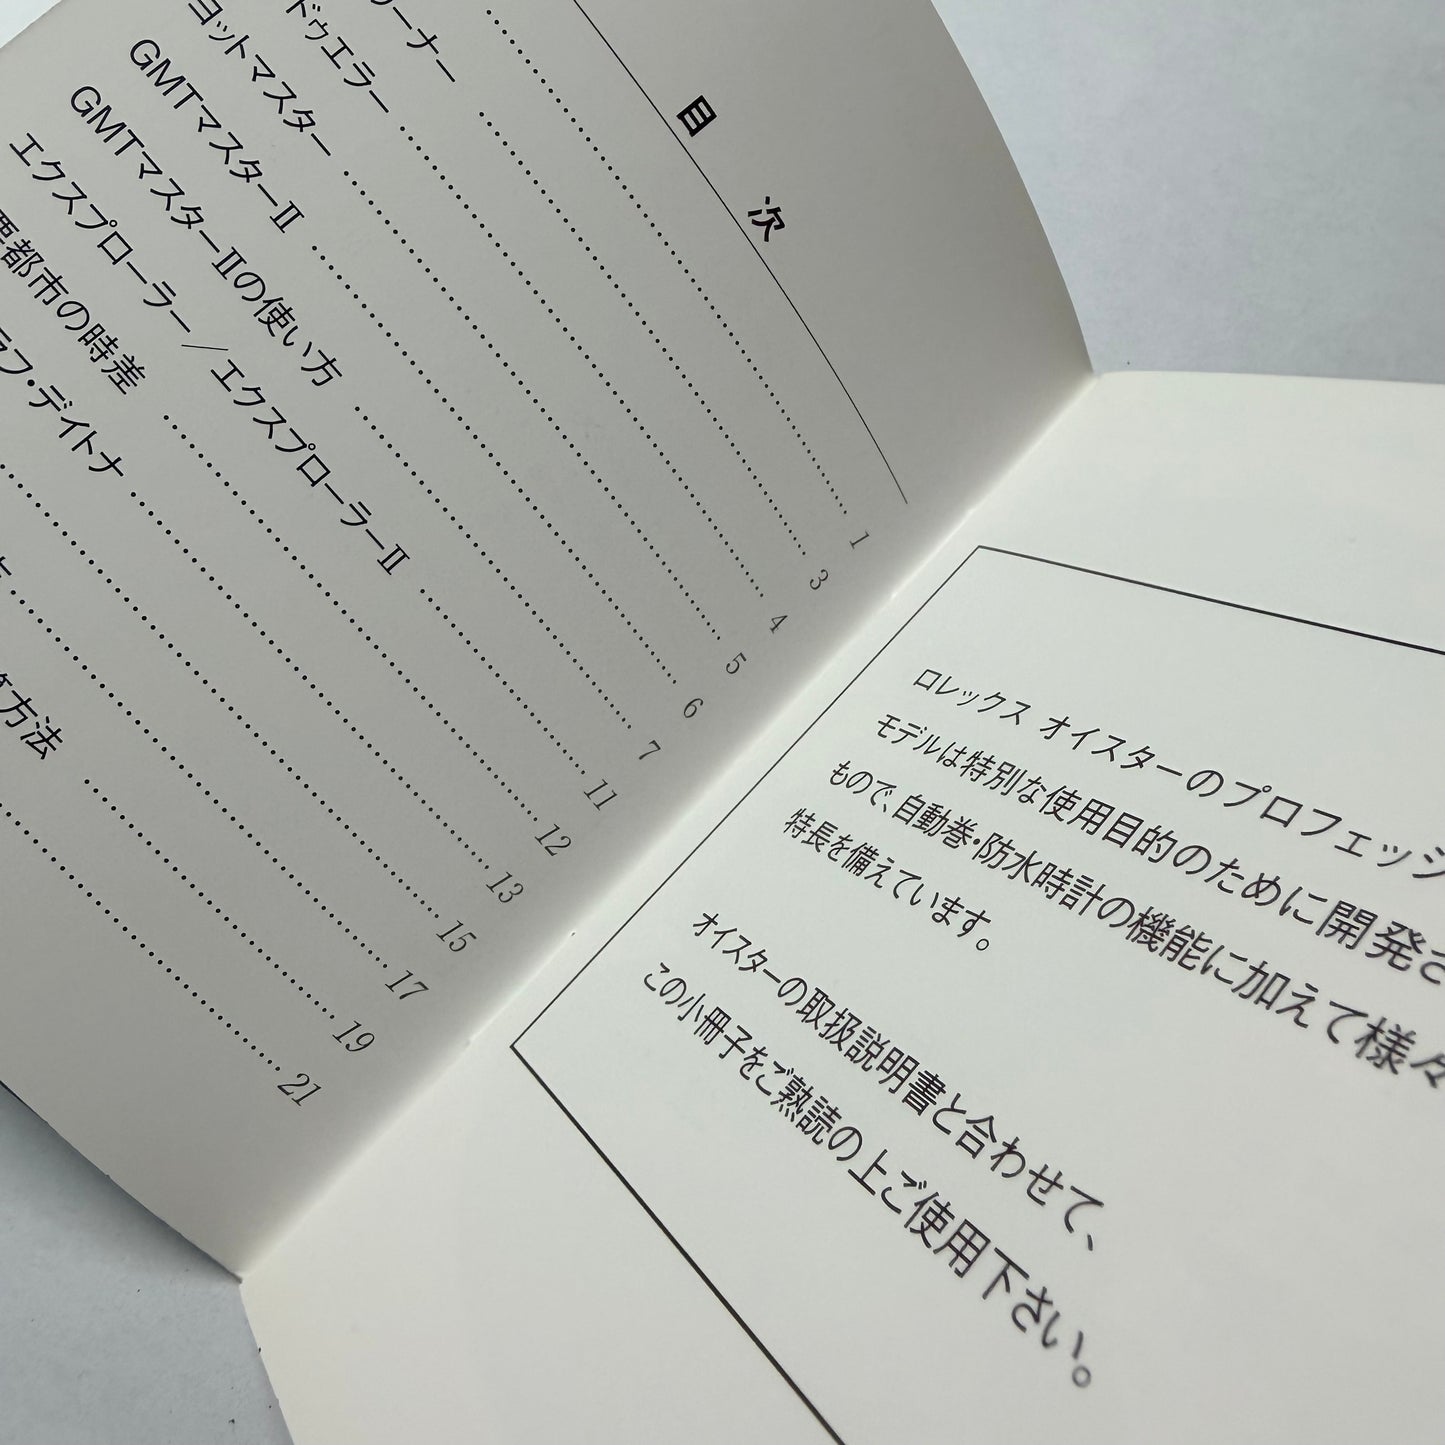 目 次
1
ーナー 3
ドゥエラー 4
ヨットマスター 5
GMTマスターII 6
GMTマスターIIの使い方 7
エクスプローラー／エクスプローラーII 11
要都市の時差 12
ラフ・デイトナ 13
15
17
方法 19
21
ロレックス オイスターのプロフェッシ
モデルは特別な使用目的のために開発さ
もので、自動巻・防水時計の機能に加えて様々
特長を備えています。
オイスターの取扱説明書と合わせて、
この小冊子をご熟読の上ご使用下さい。